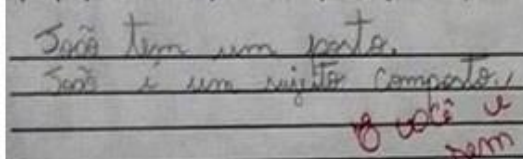 João tem um porto.
João é um sujeito composto.
E você é
sem